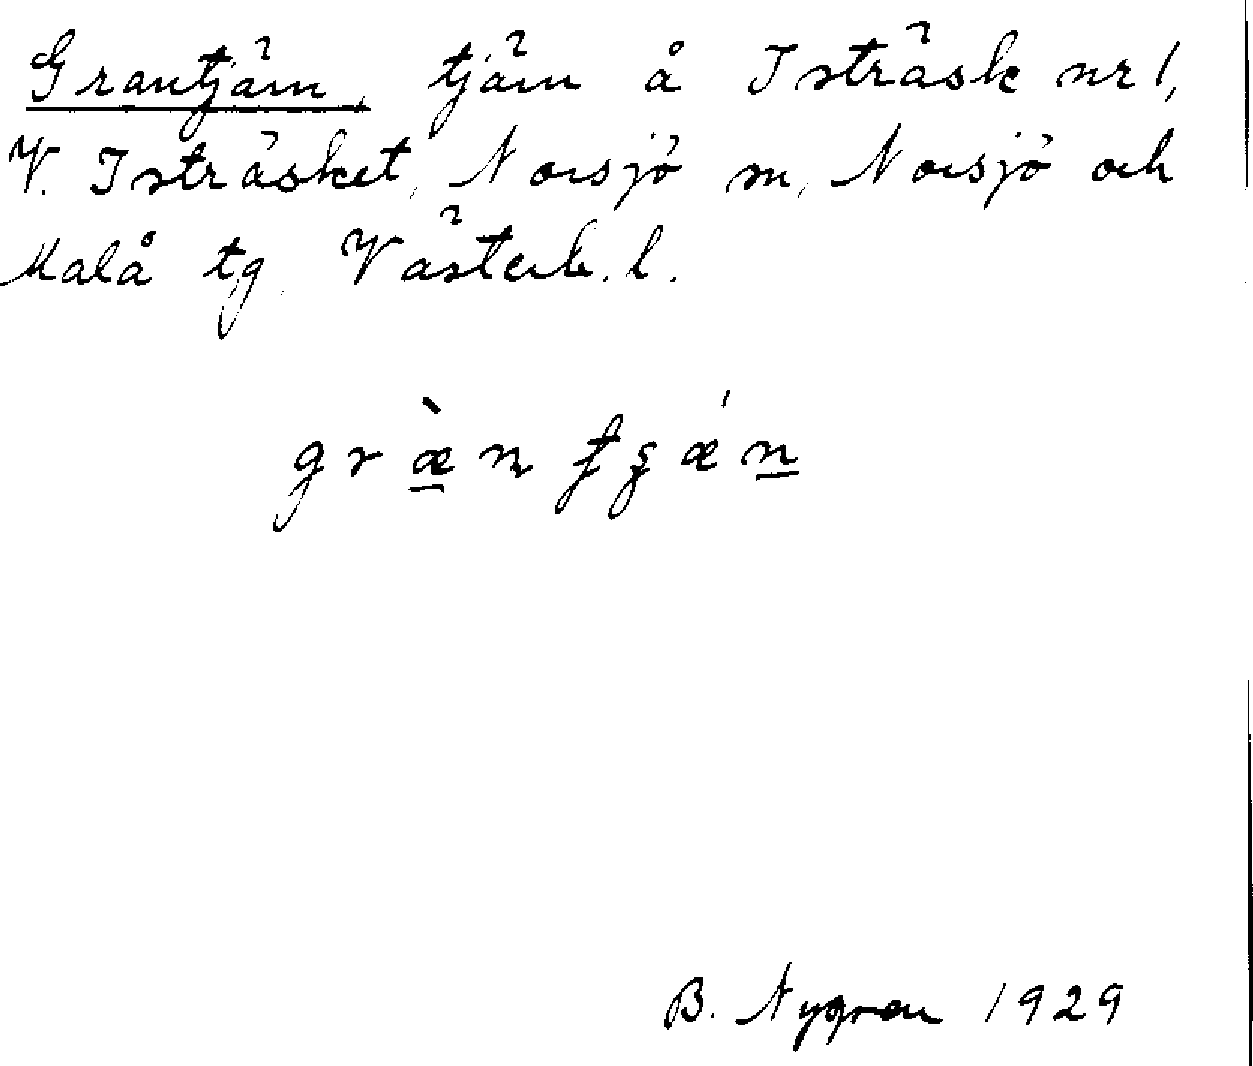 Grantjärn, tjärn å Isträsk nr 1,
V. Isträsket, Norsjö sn, Norsjö och
Malå tg. Västerb. l.
B. Nygren 1929